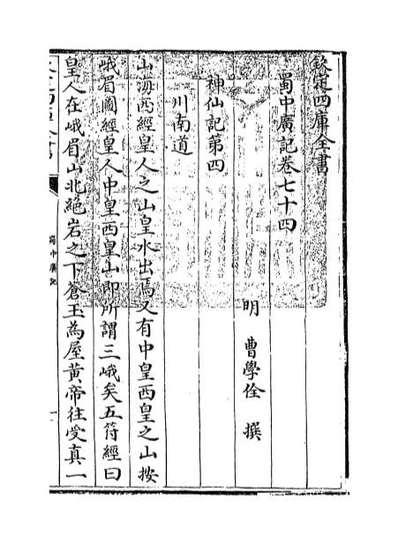 欽定四庫全書
蜀中廣記卷七十四
明　曹學佺　撰
神仙記第四
川南道
山海西經皇人之山皇水出焉又有中皇西皇之山按
峨眉圖經皇人中皇西皇山即所謂三峨矣五符經曰
皇人在峨眉山北絕岩之下蒼玉為屋黃帝往受真一
蜀中廣記
一